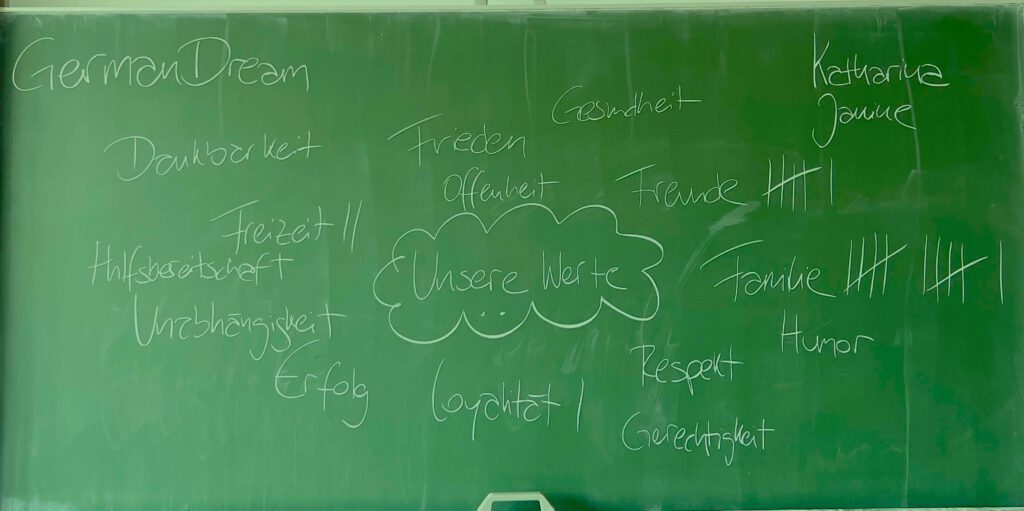 GermanDream
Katharina
Janine
Gesundheit
Dankbarkeit
Frieden
Offenheit
Freunde |||| |
Freizeit ||
Hilfsbereitschaft
Unsere Werte
...
Familie |||| |||| |
Unabhängigkeit
Humor
Erfolg
Respekt
Loyalität |
Gerechtigkeit